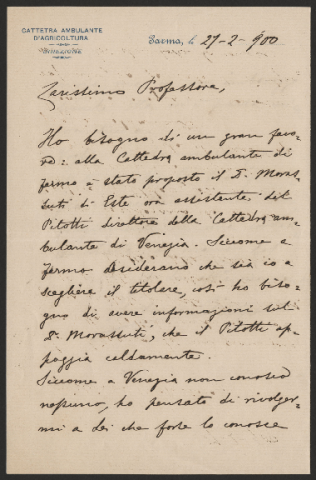 CATTETRA AMBULANTE
D'AGRICOLTURA
Parma, li 27-2-900
Carissimo Professore,
Ho bisogno di un gran favo-
re: alla Cattedra ambulante di
Fermo è stato proposto il D. Moras-
suti di Este ora assistente del
Pitotti direttore della Cattedra am-
bulante di Venezia. Siccome a
Fermo desiderano che sia io a
scegliere il titolare, così ho biso-
gno di avere informazioni sul
D. Morassuti, che il Pitotti ap-
poggia caldamente.
Siccome a Venezia non conosco
nessuno, ho pensato di rivolger-
mi a Lei che forse lo conosce